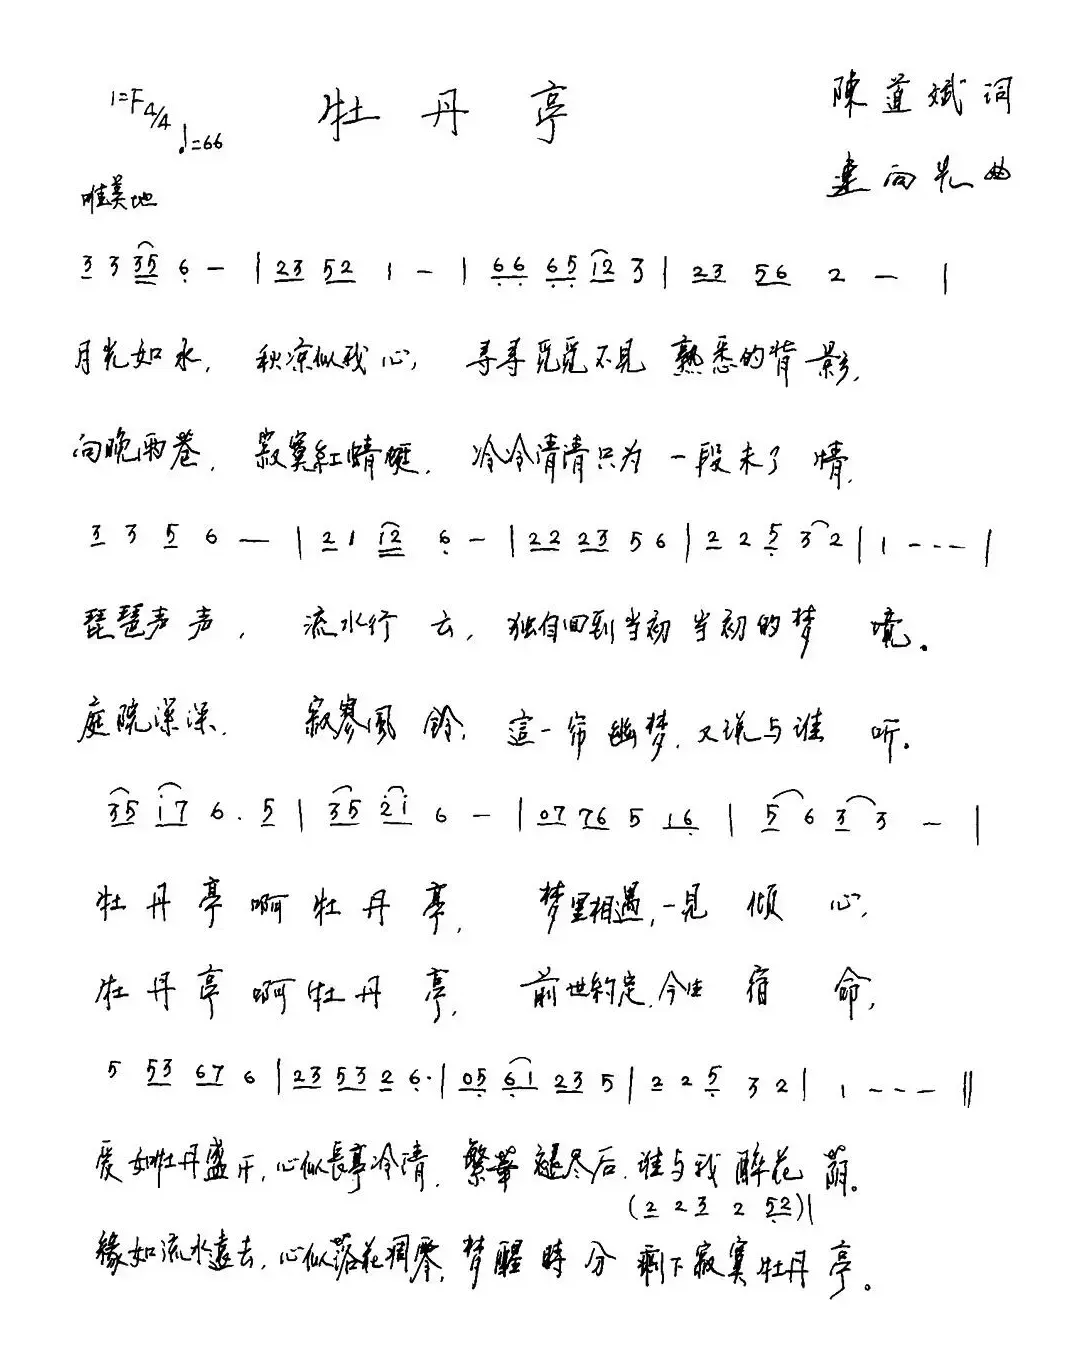 1=F 4/4 牡丹亭 陳道斌 词
♩=66 連向先 曲
唯美地
3 3 35 6 — | 23 52 1 — | 66 65 12 3 | 23 56 2 — |
月光如水, 秋凉似我心, 寻寻觅觅不见 熟悉的背影,
向晚雨巷, 寂寞紅蜻蜓, 冷冷清清只为一段未了情,
3 3 5 6 — | 2 1 12 6 — | 22 23 5 6 | 2 2 5 3 2 | 1 - - - |
琵琶声声, 流水行云, 独自回到当初 当初的梦境。
庭院深深, 寂寥風鈴; 這一帘幽梦, 又说与谁听。
35 i7 6. 5 | 35 2i 6 — | 07 76 5 16 | 5 6 3 3 — |
牡丹亭啊牡丹亭, 梦里相遇,一見傾心,
牡丹亭啊牡丹亭, 前世約定,今生宿命,
5 53 67 6 | 23 53 2 6. | 05 61 23 5 | 2 2 5 3 2 | 1 - - - ‖
爱如牡丹盛开,心似長亭冷清, 繁華褪尽后,谁与我醉花荫。
(2 2 3 2 52) |
緣如流水遠去,心似落花凋零, 梦醒時分 剩下寂寞牡丹亭。